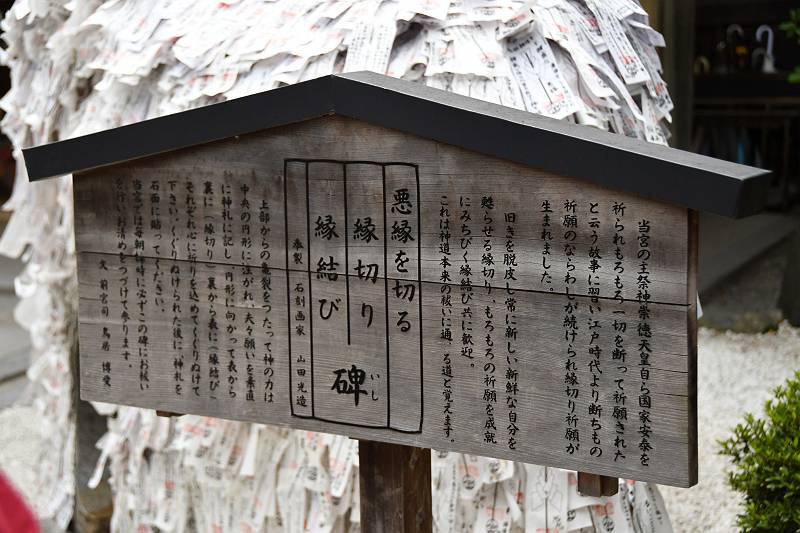 当宮の主祭神崇徳天皇自ら国家安泰を
祈られもろもろ一切を断って祈願された
と云う故事に習い江戸時代より断ちもの
祈願のならわしが続けられ縁切り祈願が
生まれました。
旧きを脱皮し常に新しい新鮮な自分を
甦らせる縁切り、もろもろの祈願を成就
にみちびく縁結び共に歓迎。
これは神道本来の祓いに通ずる道と覚えます。
悪縁を切る
縁切り
縁結び
碑
いし
奉製 石刻画家 山田光造
上部からの亀裂をつたって神の力は
中央の円形に注がれ、夫々願いを素直
に神札に記し、円形に向かって表から
裏に「縁切り」裏から表に「縁結び」
それぞれ心に祈りを込めてくぐりぬけて
下さい。くぐりぬけられた後に神札を
石面に貼って下さい。
当宮では毎朝 時に必ずこの碑にお祓い
を行い、お清めをつづけて参ります。
文 前宮司 鳥居 博愛